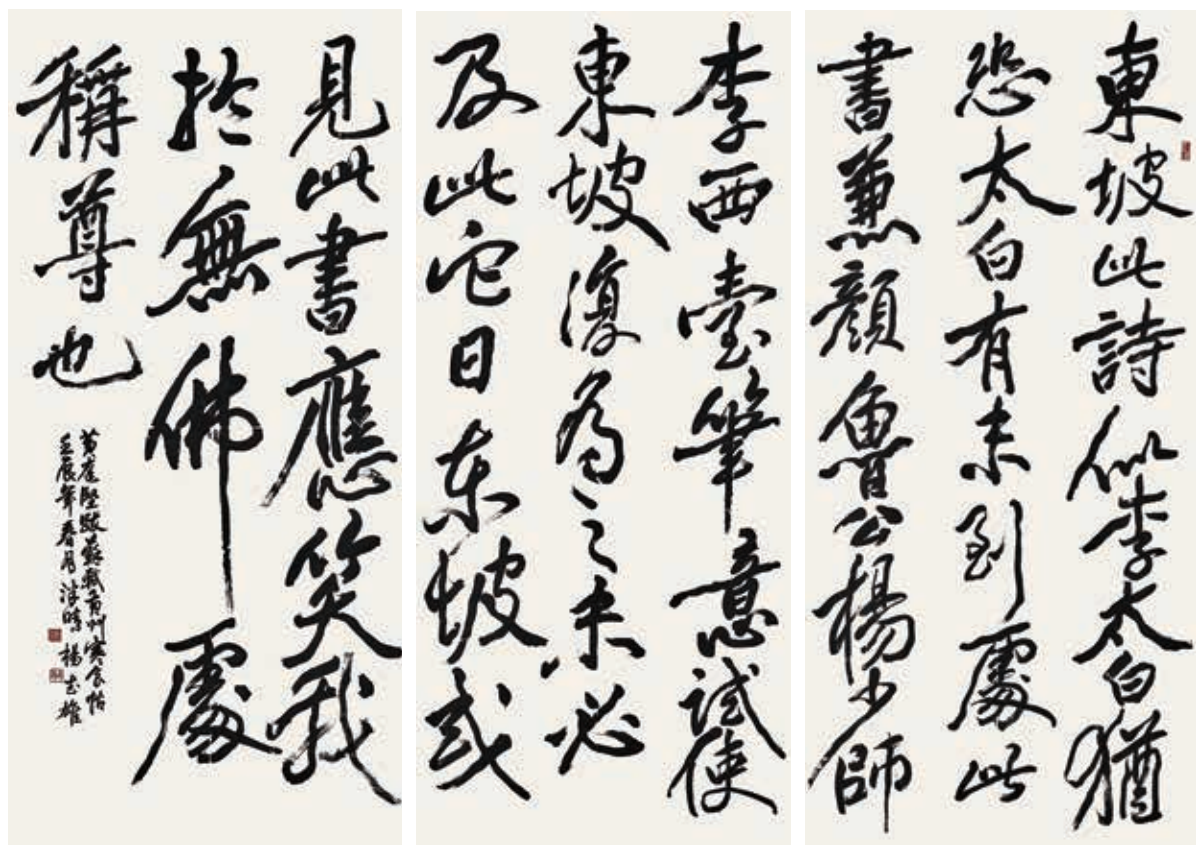 東坡此詩似李太白猶
恐太白有未到處此
書兼顏魯公楊少師
李西臺筆意試使
東坡復為之未必
及此它日東坡或
見此書應笑我
於無佛處
稱尊也
黃庭堅跋蘇軾黃州寒食帖
壬辰年春月 楊志雄